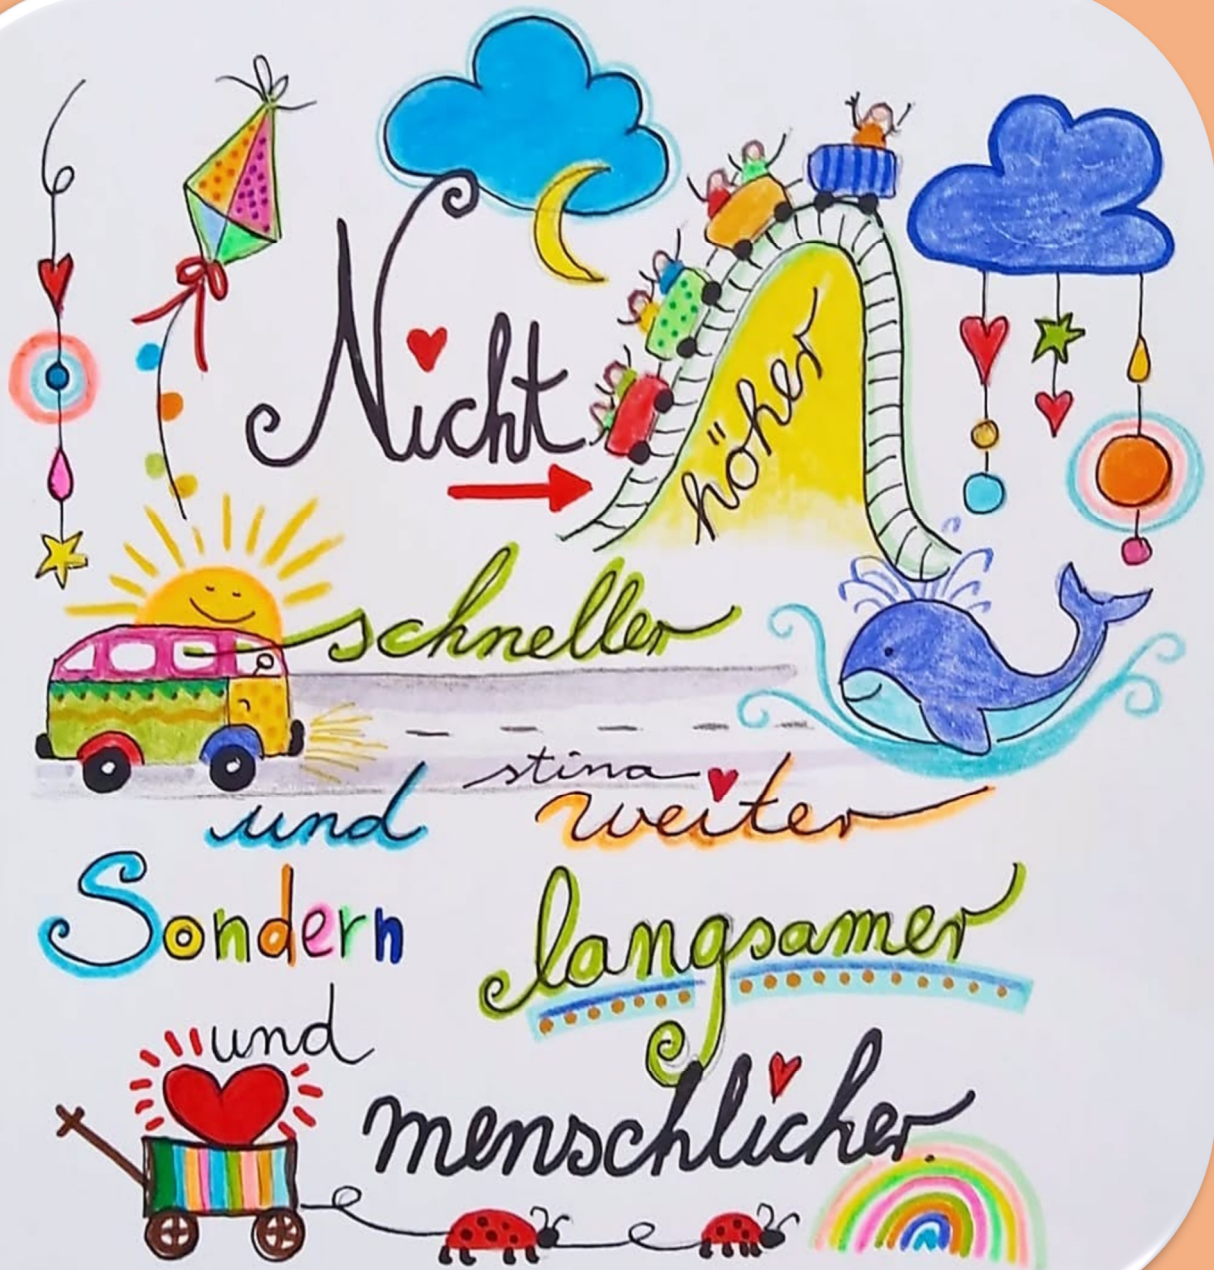 Nicht höher
schneller
stina
und weiter
Sondern langsamer
und
menschlicher.